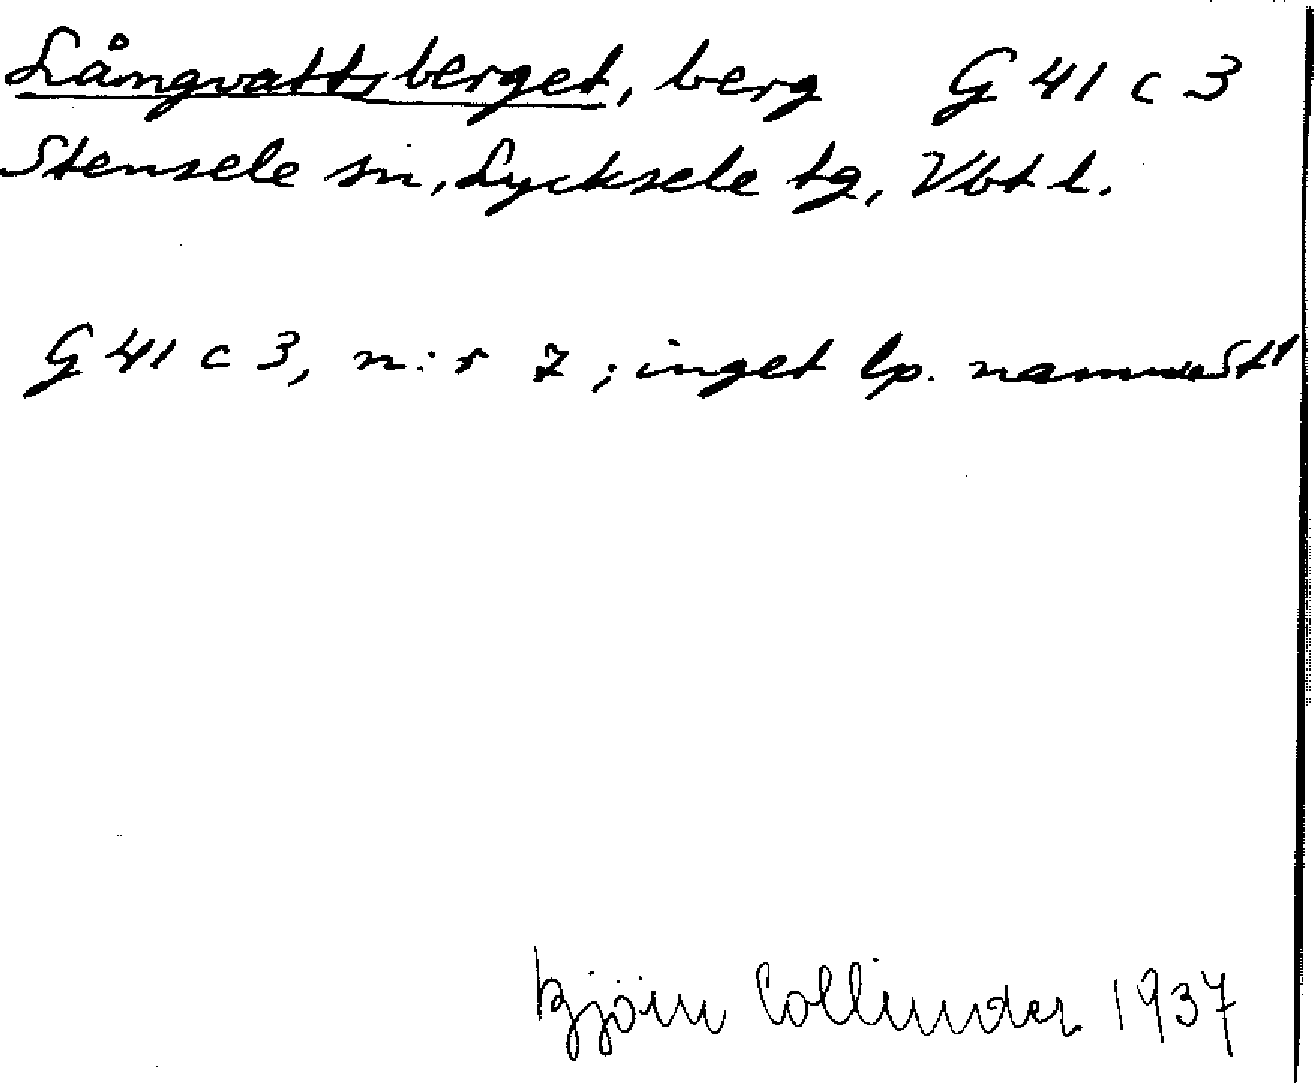 Långvattsberget, berg G 41 c 3
Stensele sn, Lycksele tg, Vbt l.
G 41 c 3, n:r 7; inget lp. namn
Björn Collinder 1937